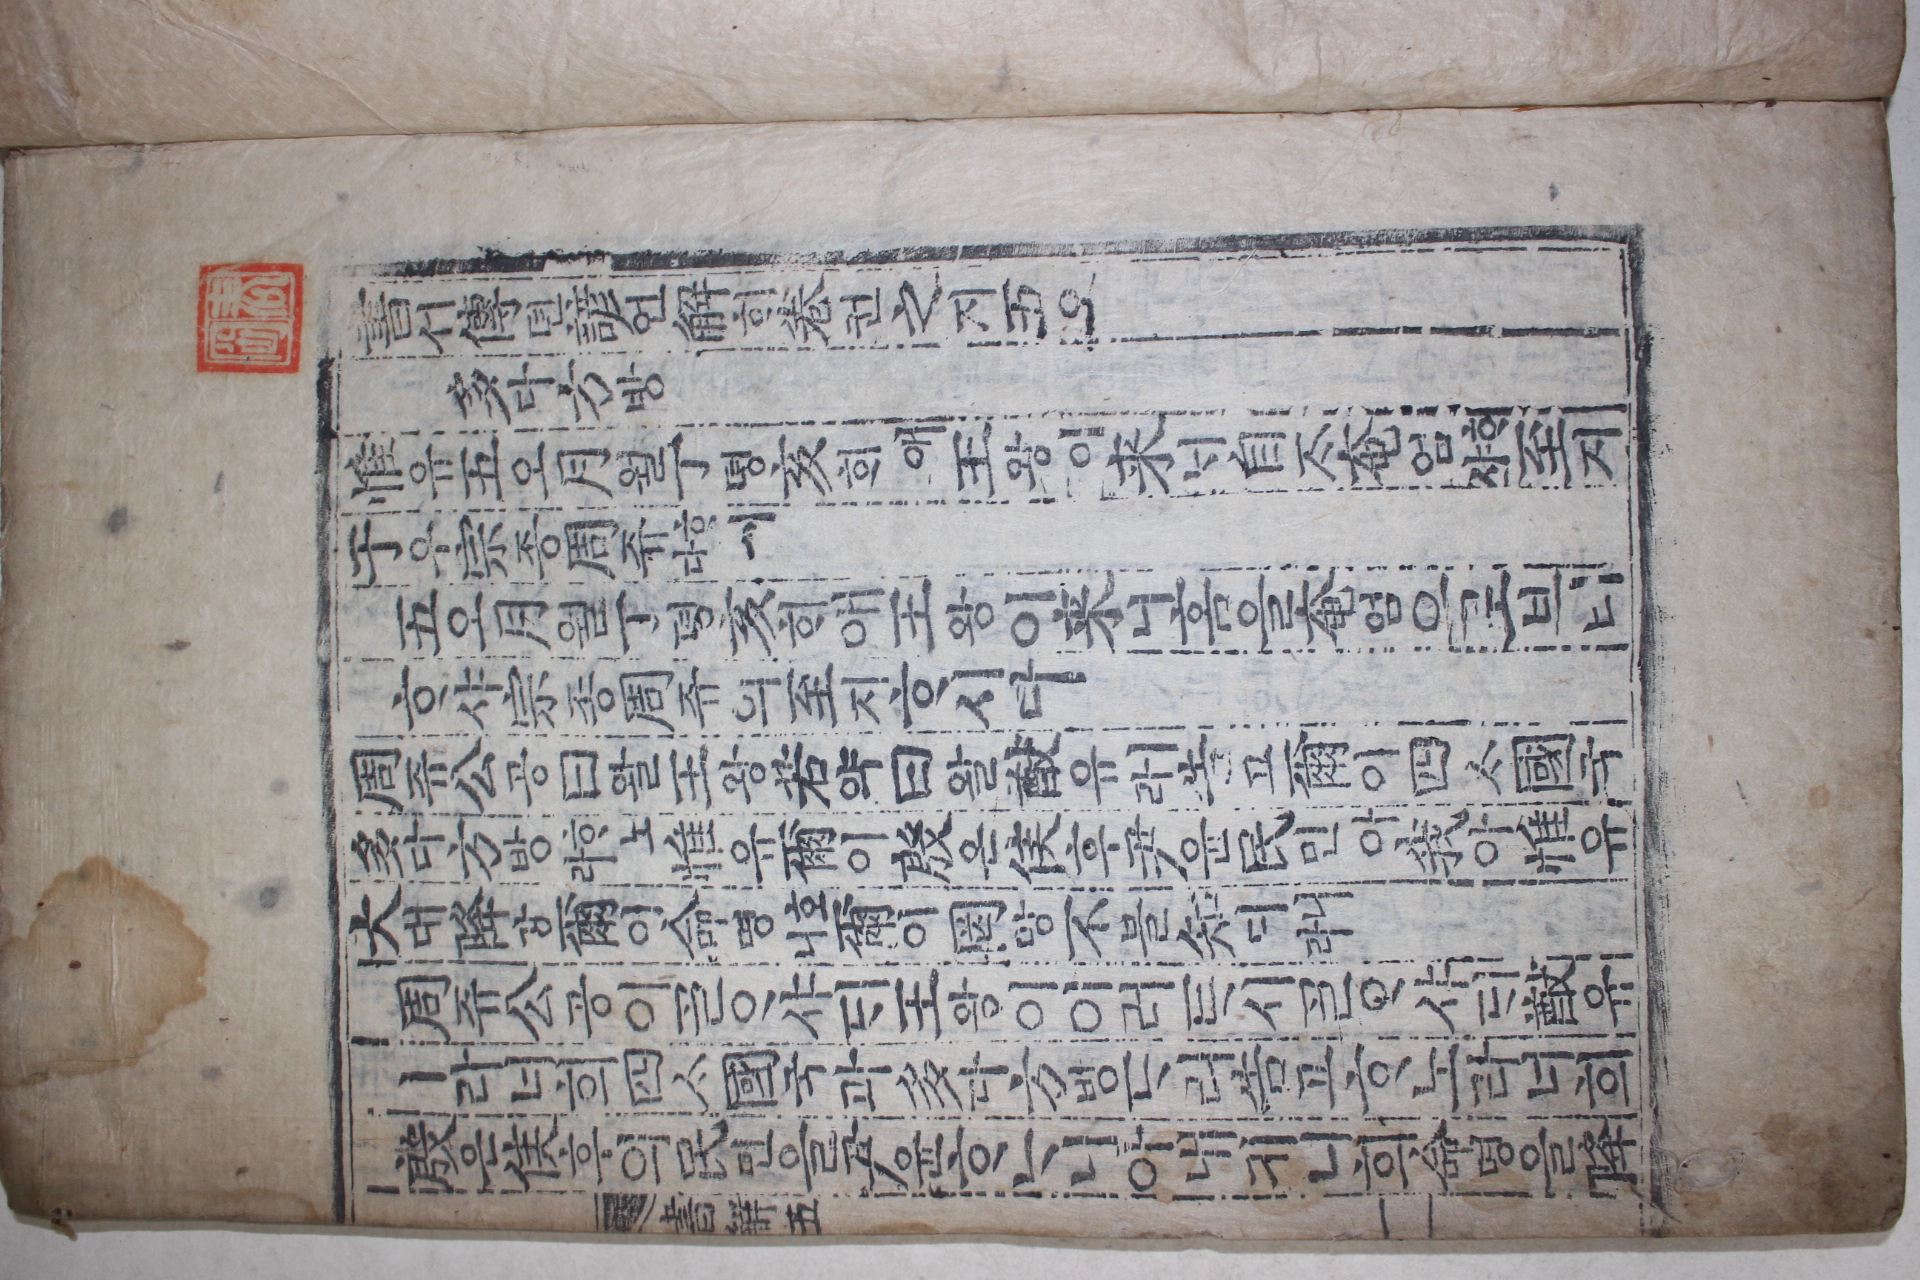 書셔傳뎐諺언解ᄒᆡ卷권之지五오
多다方방
惟유五오月월丁뎡亥ᄒᆡ애王왕이來ᄅᆡ自ᄌᆞ奄엄ᄒᆞ샤至지
于우宗종周쥬ᄒᆞ시다
五오月월丁뎡亥ᄒᆡ애王왕이來ᄅᆡᄒᆞᆷ을奄엄으로브터
ᄒᆞ샤宗종周쥬의至지ᄒᆞ시다
周쥬公공曰왈王왕若약曰왈猷유라告고爾이四ᄉᆞ國국
多다方방ᄒᆞ노라惟유爾이殷은侯후尹윤民민아我아惟유
大대降강爾이命명호니爾이罔망不블知디니라
周쥬公공이ᄀᆞᆯᄋᆞ샤ᄃᆡ王왕이이러ᄐᆞ시ᄀᆞᆯᄋᆞ샤ᄃᆡ猷유
ㅣ라너희四ᄉᆞ國국과多다方방드려告고ᄒᆞ노라너희
殷은侯후의民민을尹윤ᄒᆞᄂᆞ니아내너희命명을降
書解五
一